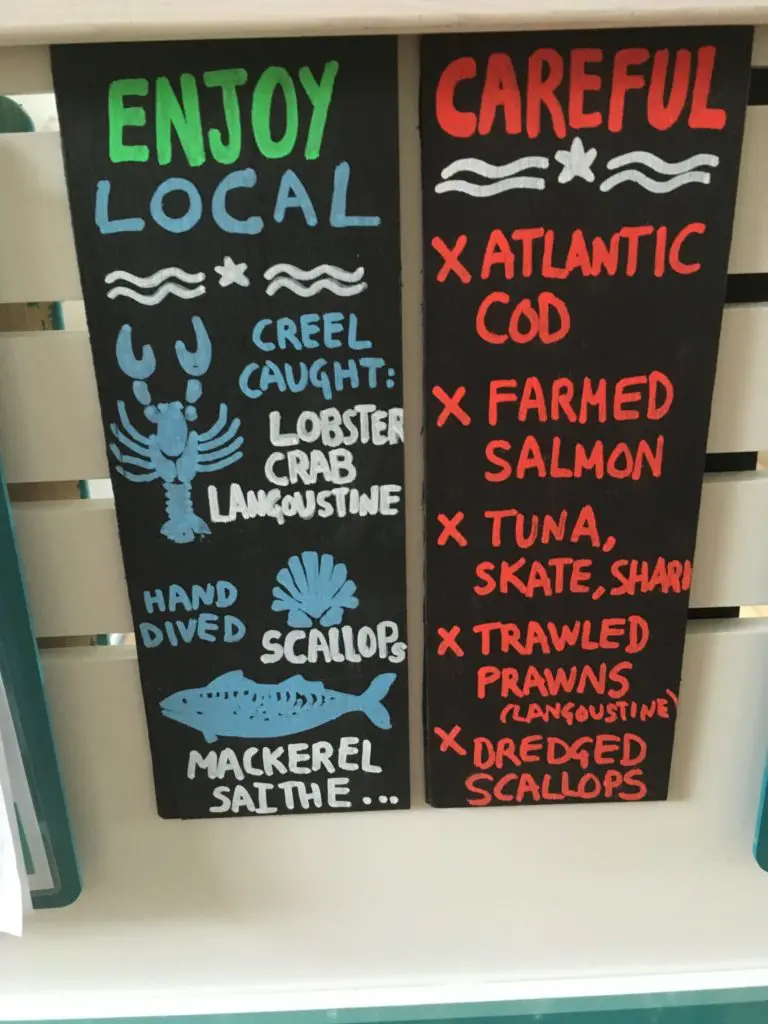 ENJOY
LOCAL
CREEL
CAUGHT:
LOBSTER
CRAB
LANGOUSTINE
HAND
DIVED
SCALLOPS
MACKEREL
SAITHE...
CAREFUL
X ATLANTIC
COD
X FARMED
SALMON
X TUNA,
SKATE, SHARK
X TRAWLED
PRAWNS
(LANGOUSTINE)
X DREDGED
SCALLOPS